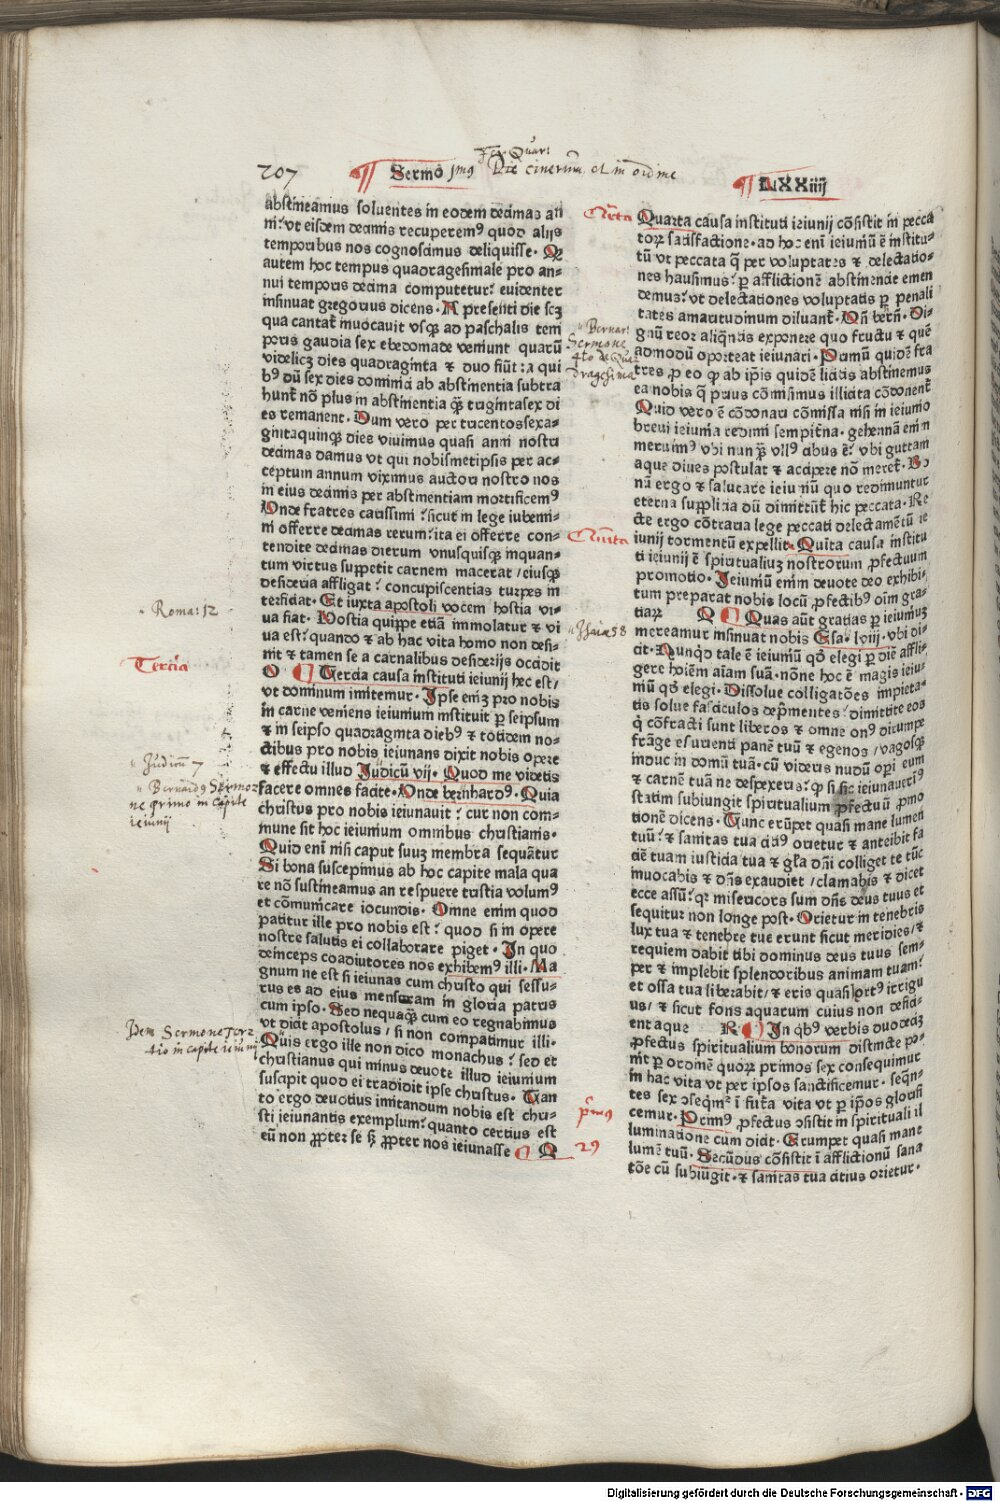 207 ¶ Sermo jmꝰ Die cinerum et in ordine
Fer Quar:
¶ LXXiiij
abstineamus soluentes in eodem decimas an
ni ut eisdem decimis recuperemꝰ quod alijs
temporibus nos cognoscimus deliquisse. Q
autem hoc tempus quadragesimale pro an⸗
nui temporis decima computetur: euidenter
insinuat gregorius dicens. A presenti die scꝫ
qua cantat᷑ inuocauit vsqꝫ ad paschalis tem
poris gaudia sex ebdomade veniunt quarū
videlicꝫ dies quadraginta ⁊ duo fiūt: a qui
bꝰ dū sex dies dominici ab abstinentia subtra
hunt᷑ nō plus in abstinentia q̄ꝫ trigintasex di
es remanent. Dum vero per trecentossexa⸗
gintaquinqꝫ dies viuimus quasi anni nostri
decimas damus vt qui nobismetipsis per ac⸗
ceptum annum viximus auctori nostro nos
in eius decimis per abstinentiam mortificemꝰ
Onde fratres carissimi sicut in lege iubemi⸗
ni offerre decimas rerum: ita ei offerre con⸗
tendite decimas dierum vnusquisqꝫ inquan⸗
tum virtus suppetit carnem macerat / eiusqꝫ
desideria affligat: concupiscentias turpes in
terficiat. Et iuxta apostoli vocem hostia vi⸗
ua fiat. Hostia quippe etiā immolatur ⁊ vi
ua est: quando ⁊ ab hac vita homo non defi⸗
nit ⁊ tamen se a carnalibus desiderijs occidit
O ¶ Tercia causa instituti ieiunij hec est /
vt dominum imitemur. Ipse enīꝫ pro nobis
in carne veniens ieiunium instituit p̱ seipsum
⁊ in seipso quadraginta diebꝰ ⁊ totidem no⸗
ctibus pro nobis ieiunans dixit nobis opere
⁊ effectu illud Judicū vij. Quod me videtis
facere omnes facite. Onde bernhardꝰ. Quia
christus pro nobis ieiunauit: cur non com⸗
mune sit hoc ieiunium omnibus christianis.
Quid enī nisi caput suuꝫ membra sequātur
Si bona suscepimus ab hoc capite mala qua
re nō sustineamus an respuere tristia volumꝰ
et cōmunicare iocundis. Omne enim quod
patitur ille pro nobis est: quod si in opere
nostre salutis ei collaborare piget. In quo
deinceps coadiutores nos exhibemꝰ illi. Ma
gnum ne est si ieiunas cum christo qui sessu⸗
rus es ad eius mensam in gloria patris
cum ipso. Sed nequaqꝫ cum eo regnabimus
vt dicit apostolus / si non compatimur illi.
Quis ergo ille non dico monachus: sed et
christianus qui minus deuote illud ieiunium
suscipit quod ei tradidit ipse christus. Tan
to ergo deuotius imitandum nobis est chri⸗
sti ieiunantis exemplum: quanto certius est
eū non ꝓpter se sꝫ ꝓpter nos ieiunasse ¶ Q
Roma: 12
Tercia
Judicū 7
Bernardꝰ Sermo⸗
ne primo in Capite
ieiunij
Idem Sermone Ter⸗
tio in capite ieiunij
Quarta causa instituti ieiunij cōsistit in pecca
torꝝ satisfactione. ad hoc enī ieiuniū ē institu⸗
tū vt peccata q̄ per voluptates ⁊ delectatio⸗
nes hausimus: p̱ afflictionē abstinencie emen
demus: vt delectationes voluptatis p̱ penali
tates amaritudinum diluant᷑. Vn̄ bern̄. Di⸗
gnū reor aliqn̄tis exponere quo fructu ⁊ quē
admodū oporteat ieiunari. Primū quidē fra
tres ꝓ eo ꝙ ab ip̄is quidē licitis abstinemus
ea nobis q̄ prius cōmisimus illicita cōdonent᷑
Quid vero ē cōdonari cōmissa nisi in ieiunio
breui ieiunia redimi sempit̄na. gehennā enim
meruimꝰ vbi nunqꝫ vllꝰ cibus ē: vbi guttam
aque diues postulat ⁊ accipere nō meret᷑. Bo
nū ergo ⁊ salutare ieiuniū quo redimuntur
eterna supplicia dū dimittūt᷑ hic peccata. Re
cte ergo cōtraria lege peccati delectamētū ie
iunij tormentū expellit. Quīta causa institu
ti ieiunij ē spiritualiuꝫ nostrorum ꝓfectuum
promotio. Ieiuniū enim deuote deo exhibi⸗
tum preparat nobis locū ꝓfectibꝰ oīm gra⸗
tiarꝝ Q ¶ Quas aūt gratias p̱ ieiuniuꝫ
mereamur insinuat nobis Esa. lviij. vbi di⸗
cit. Nunqd tale ē ieiuniū qd elegi p̱ diē affli⸗
gere hoīem aīam suā. nōne hoc ē magis ieiu⸗
niū qd elegi. Dissolue colligatōes impieta⸗
tis solue fasciculos dep̄mentes: dimittite eos
q̇ cōfracti sunt liberos ⁊ omne onꝰ dirumpe
frāge esurienti panē tuū ⁊ egenos / vagosqꝫ
induc in domū tuā. cū videris nudū operi eum
⁊ carnē tuā ne despexeris: ꝙ si sic ieiunauerꝭ
statim subiungit spiritualium ꝓfectuū ꝓmo
tionē dicens. Tunc erūpet quasi mane lumen
tuū: ⁊ sanitas tua citiꝰ orietur ⁊ anteibit fa
ciē tuam iusticia tua ⁊ gl̄a dn̄i colliget te tūc
inuocabis ⁊ dn̄s exaudiet / clamabis ⁊ dicet
ecce assū: qr misericors sum dn̄s deus tuus et
sequitur non longe post. Orietur in tenebris
lux tua ⁊ tenebre tue erunt sicut meridies / ⁊
requiem dabit tibi dominus deus tuus sem⸗
per ⁊ implebit splendoribus animam tuam:
et ossa tua liberabit / ⁊ eris quasi ortꝰ irrigu
us / ⁊ sicut fons aquarum cuius non defici⸗
ent aque R ¶ In qbꝰ verbis duodecꝫ
ꝓfectus spiritualium bonorum distincte po⸗
nit p̱ ordinē quorꝝ primos sex consequimur
in hac vita vt per ipsos sanctificemur. seqn̄⸗
tes sex ↄseqm̄r ī fut᷑a vita vt p̱ ip̄os glorifi
cemur. Primꝰ ꝓfectus ↄsistit in spirituali il
luminatione cum dicit. Erumpet quasi mane
lumē tuū. Secūdus cōsistit ī afflictionū sana
tōe cū subiūgit. ⁊ sanitas tua citius orietur.
Qrta
Bernar:
Sermone
4to de Qua
dragesima
Quīta
Isaia 58
p̄mꝰ
2ꝰ
Digitalisierung gefördert durch die Deutsche Forschungsgemeinschaft - DFG